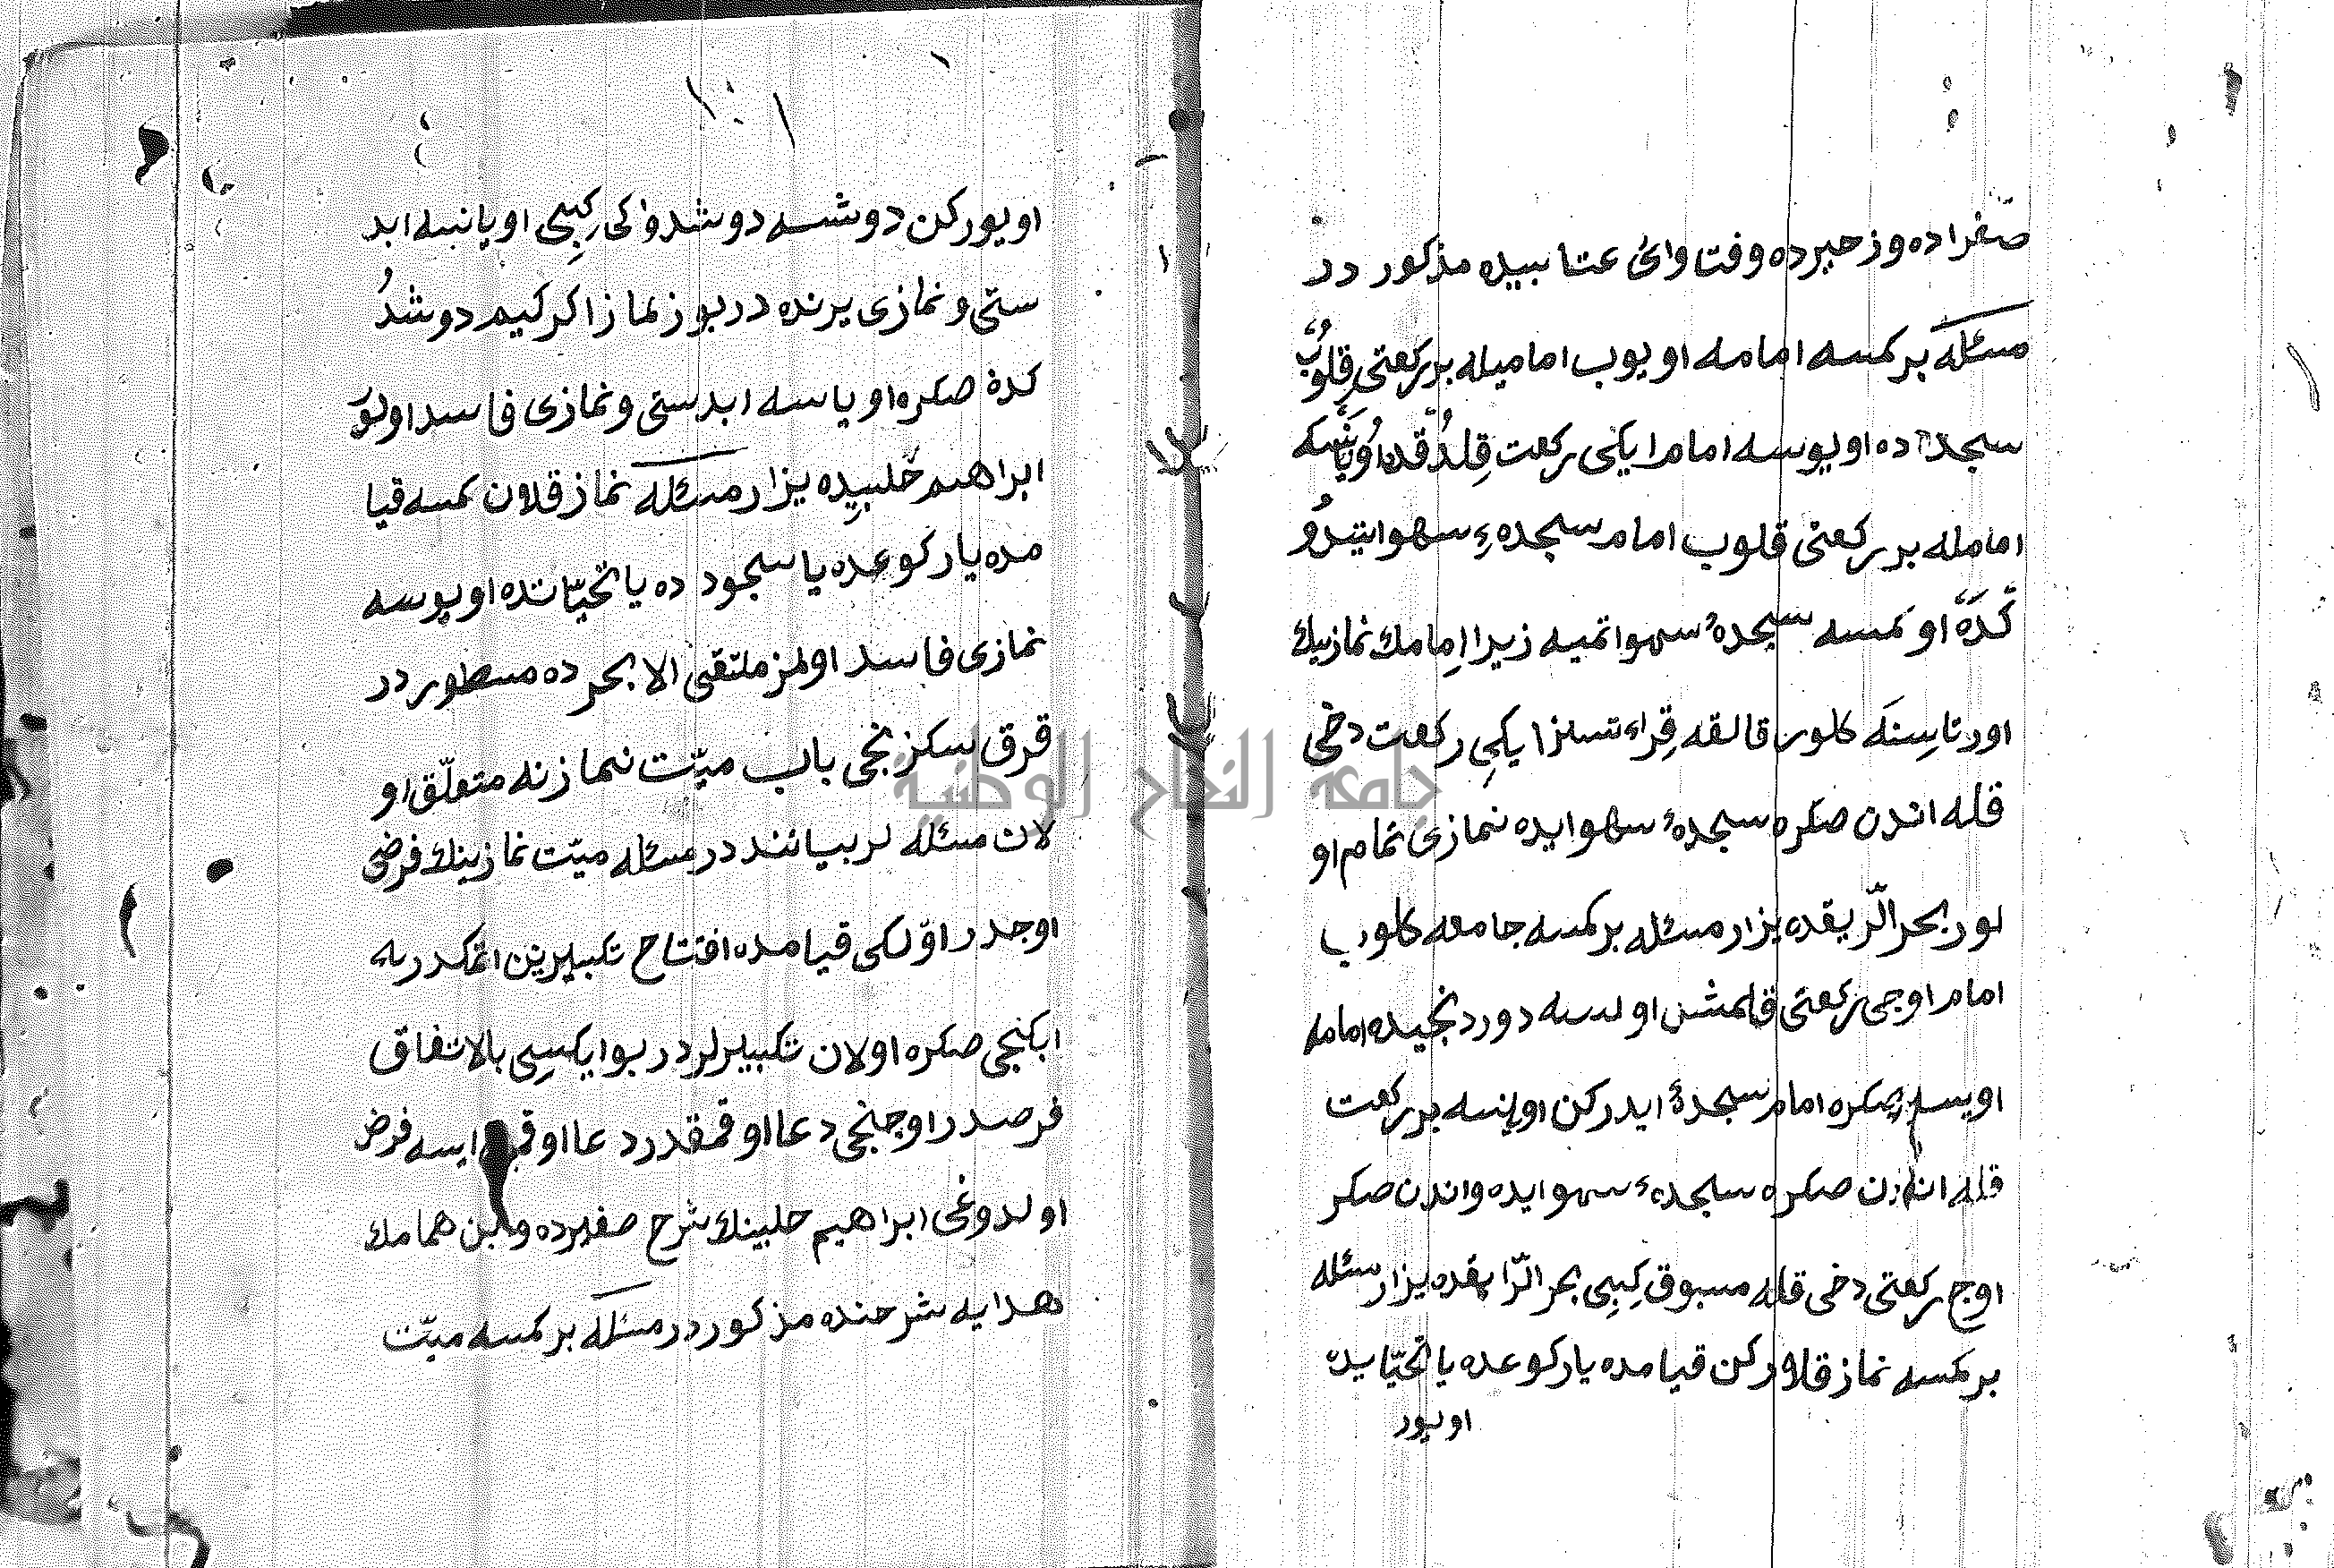 صغراده و زحيرده و فتاوائ عتابييده مذكور در
مسئله بر كمسه امامه اويوب اماميله بر ركعتى قلوب
سجده ده اويوسه امام ايكى ركعت قلدقده اويانسه
امامله بر ركعتى قلوب امام سجدهء سهو ايتدو
كده او كمسه سجدهء سهو اتميه زيرا امامك نمازينك
اورتاسنه كلور قالقه قراءتسز ايكى ركعت دخى
قله اندن صكره سجدهء سهو ايده نمازى تمام او
لور بحر الرّيقده يزار مسئله بر كمسه جامعه كلوب
امام اوجى ركعتى قلمش اولسه دوردنجيده امامه
اويسه صكره امام سجدهٔ ايدركن اويسه بر ركعت
قله اندن صكره سجدهء سهو ايده واندن صكر
اوج ركعتى دخى قله مسبوق كبى بحر الرّايقده يزار مسئله
بر كمسه نماز قلاوركن قيامده يا ركوعده يا تحيّايده
اويور
اويوركن دوشسه دوشدوكى كبى اويانسه ابد
ستى و نمازى يرنده در بوزلماز اكر كيم دوشد
كده صكره اوياسه ابدستى و نمازى فاسد اولور
ابراهيم حلبيده يزار مسئله نماز قلان كمسه قيا
مده يا ركوعده يا سجود ده يا تحيّاتده اويوسه
نمازى فاسد اولمز ملتقى الابحر ده مسطور در
قرق سكزنجى باب ميّت نمازنه متعلّق او
لان مسئله لر بياننده در مسئله ميّت نمازينك فرضى
اوجدر اوّلكى قيامده افتتاح تكبيرين اتمكدر
ايكنجى صكره اولان تكبيرلردر بو ايكسى بالاتفاق
فرصدر اوجنجى دعا اوقمقدر دعا اوقمق ايسه فرض
اولدوغى ابراهيم حلبينك شرح صغيرده و ابن همامك
هدايه شرحنده مذكور در مسئله بر كمسه ميّت
جامعة النجاح الوطنية